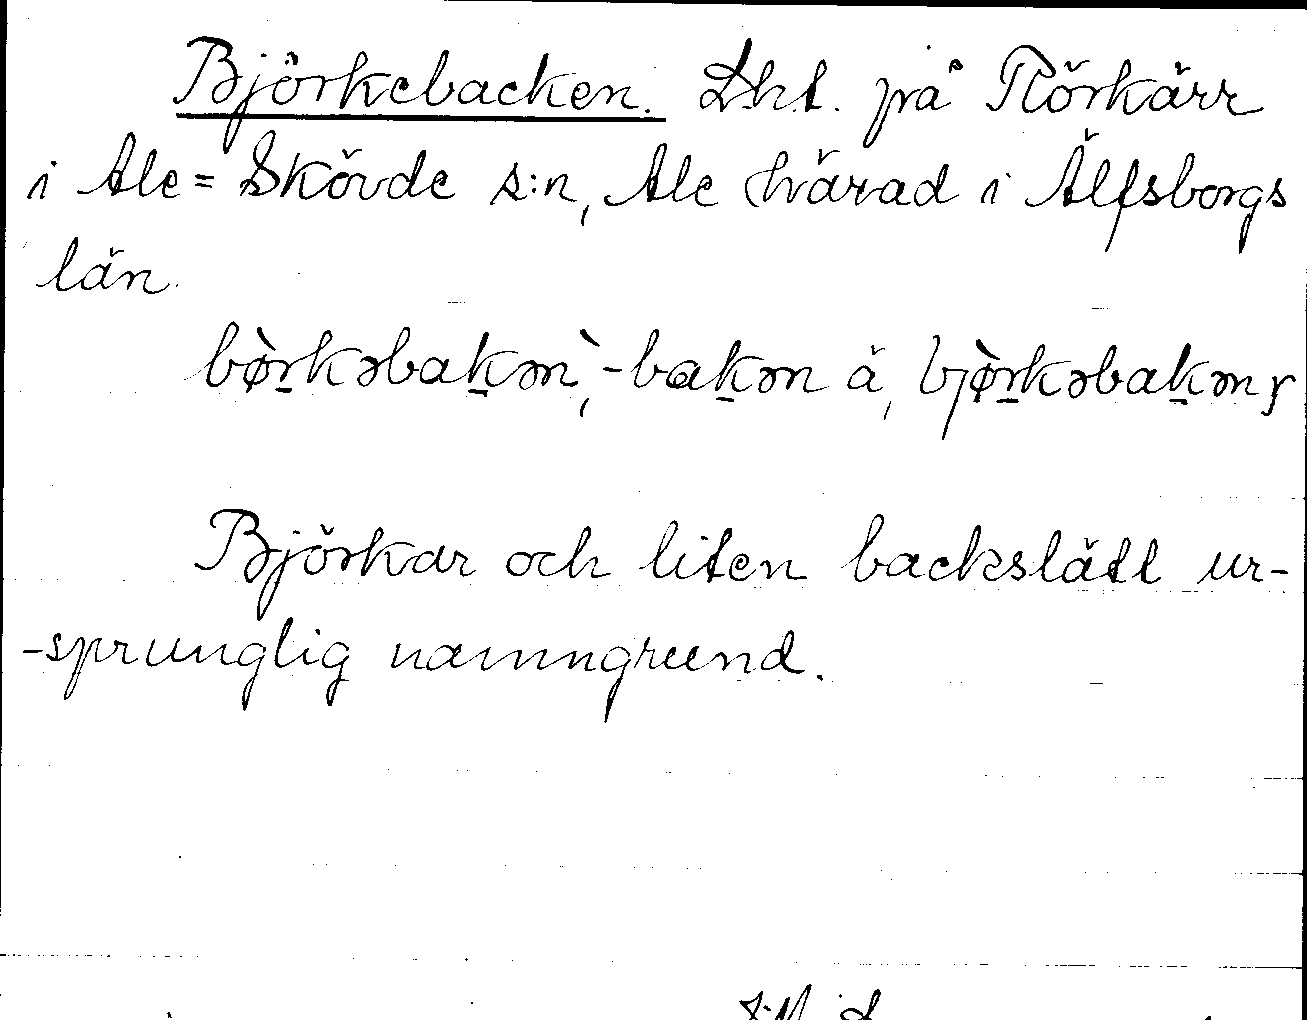 Björkebacken. Lht. på Rörkärr
i Ale=Skövde s:n, Ale härad i Älfsborgs
län.
bø̀rkəbakən, -bakən ä, bjø̀rkəbakən
Björkar och liten backslätt ur-
-sprunglig namngrund.